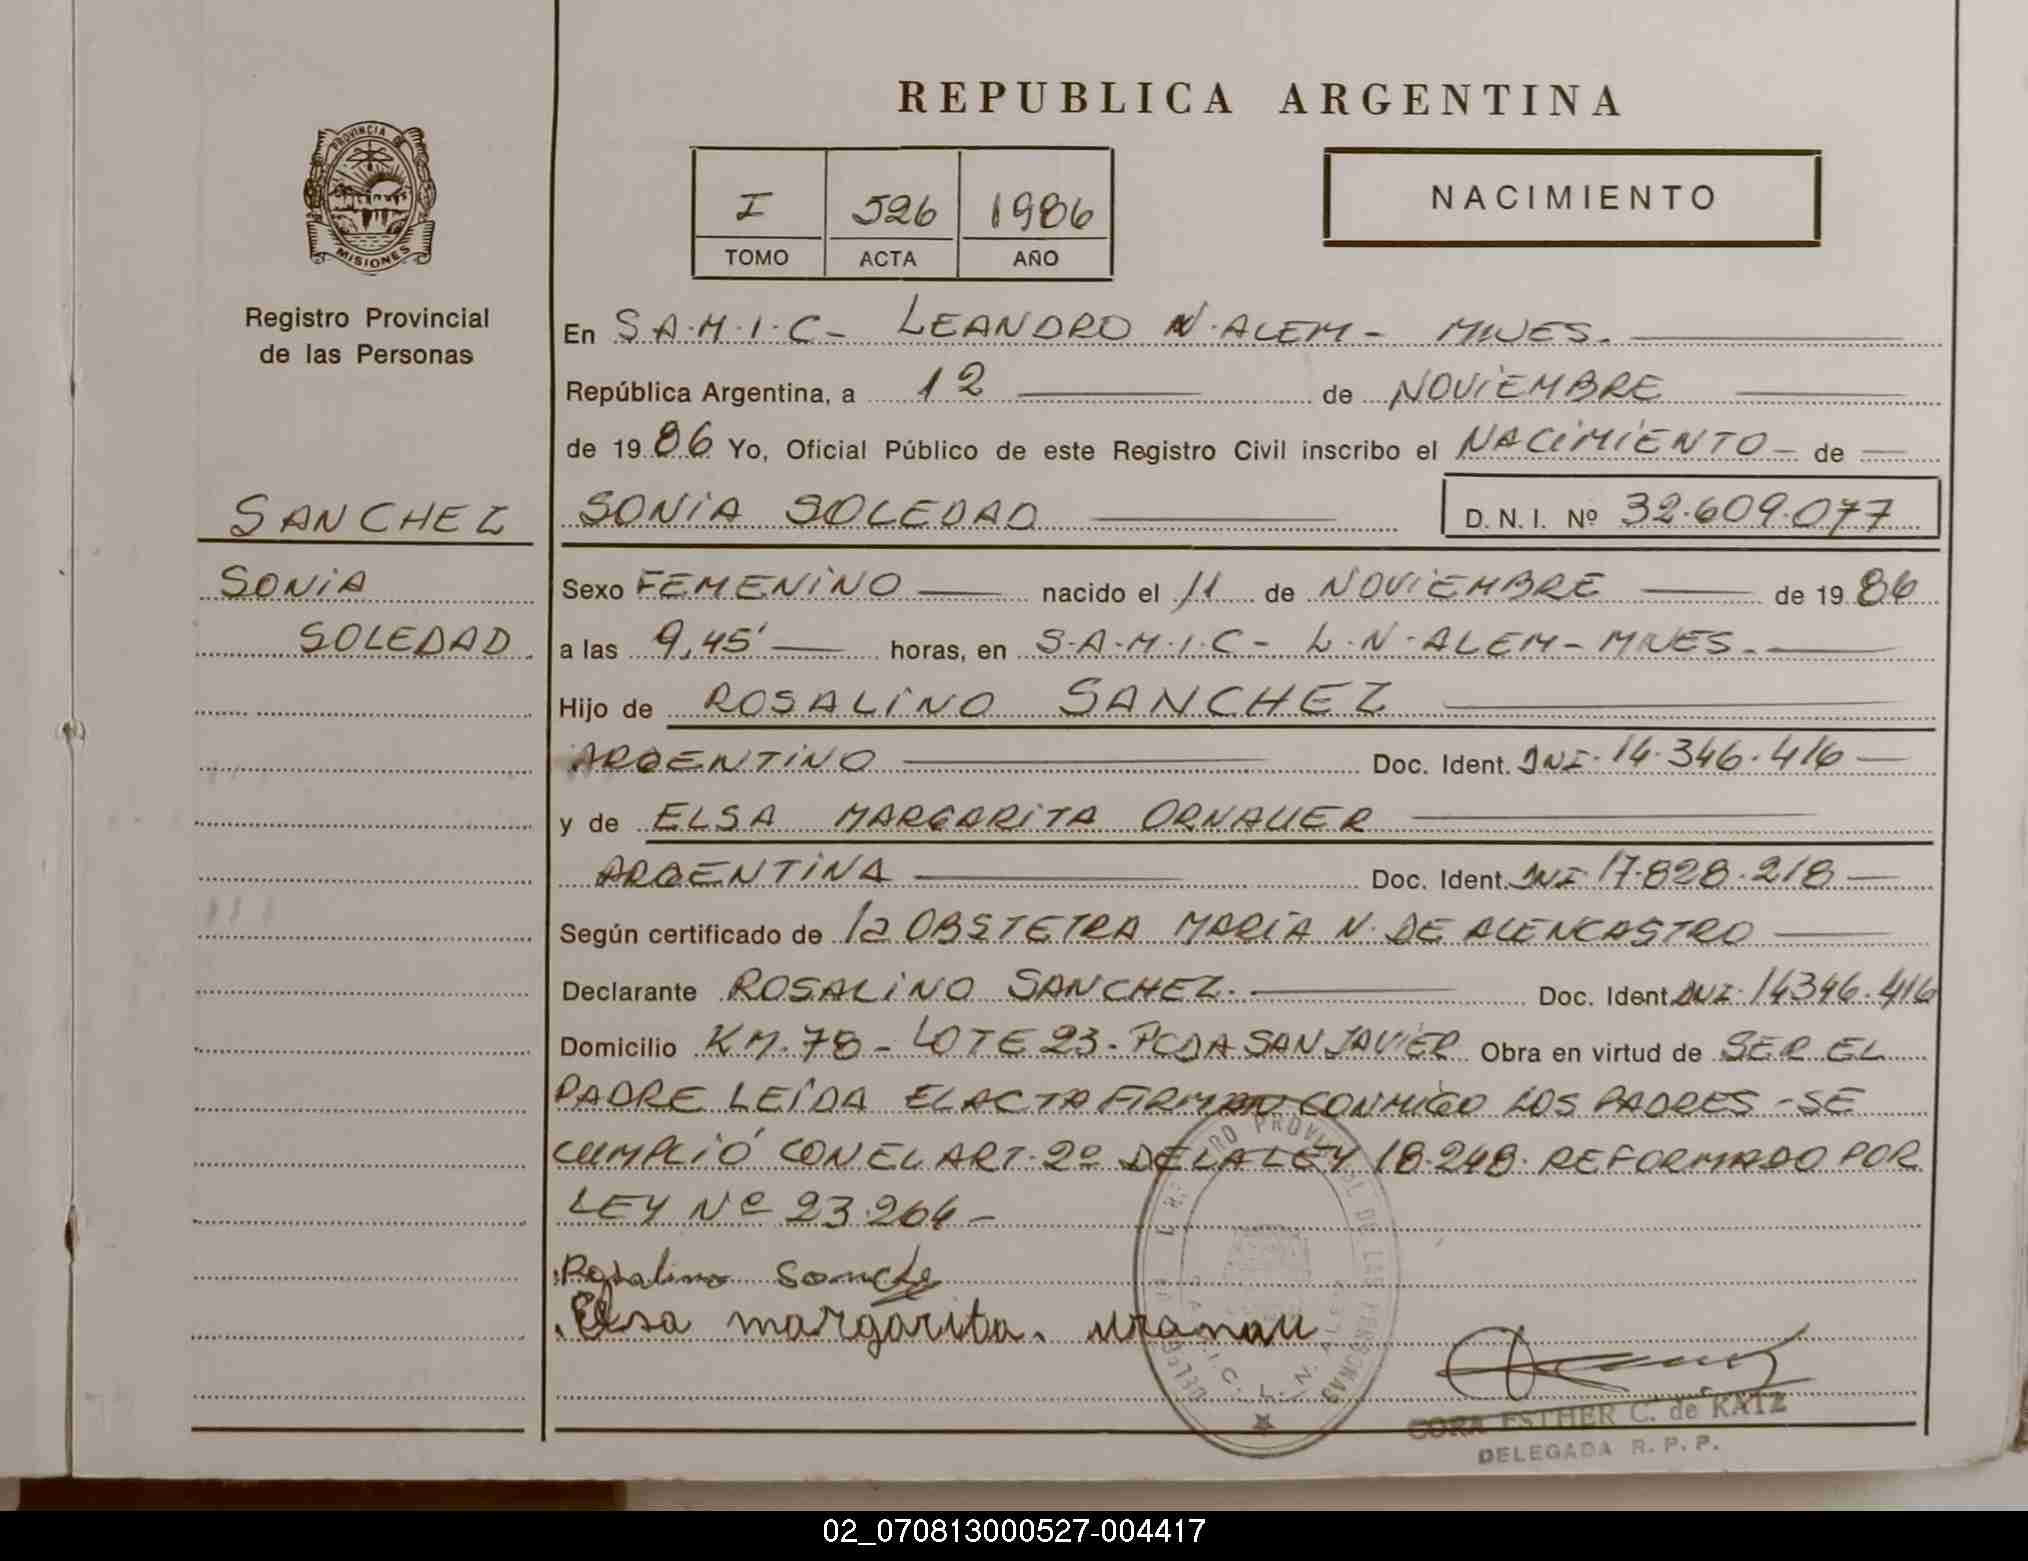 REPUBLICA ARGENTINA
PROVINCIA DE
MISIONES
Registro Provincial
de las Personas
I 526 1986
TOMO ACTA AÑO
NACIMIENTO
En S.A.M.I.C - LEANDRO N. ALEM - MNES.
República Argentina, a 12 de NOVIEMBRE
de 1986 Yo, Oficial Público de este Registro Civil inscribo el NACIMIENTO - de
SANCHEZ
SONIA SOLEDAD D.N.I. Nº 32.609.077
SONIA
SOLEDAD
Sexo FEMENINO nacido el 11 de NOVIEMBRE de 1986
a las 9,45' horas, en S.A.M.I.C - L.N. ALEM - MNES.
Hijo de ROSALINO SANCHEZ
ARGENTINO Doc. Ident. DNI. 14.346.416
y de ELSA MARGARITA ORNAUER
ARGENTINA Doc. Ident. DNI 17.828.218
Según certificado de la OBSTETRA MARIA N. DE ALENCASTRO
Declarante ROSALINO SANCHEZ. Doc. Ident. DNI. 14346.416
Domicilio KM. 78 - LOTE 23 - PCDA SAN JAVIER Obra en virtud de SER EL
PADRE LEIDA EL ACTA FIRMAN CONMIGO LOS PADRES - SE
CUMPLIÓ CON EL ART. 2º DE LA LEY 18.248. REFORMADO POR
LEY Nº 23.264 -
Rosalino Sanche
Elsa margarita.
PROVINCIAL DE LAS PERSONAS
S.A.M.I.C. L.N. ALEM
CORA ESTHER C. de KATZ
DELEGADA R.P.P.
02_070813000527-004417